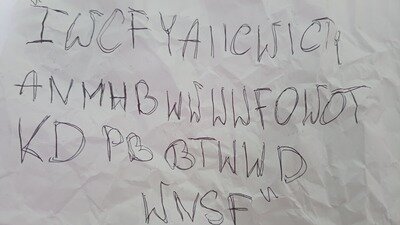 "IWCFYAIICWICTY
ANMHBWWWWFOWOT
KD PB BTWWD
WNSF"